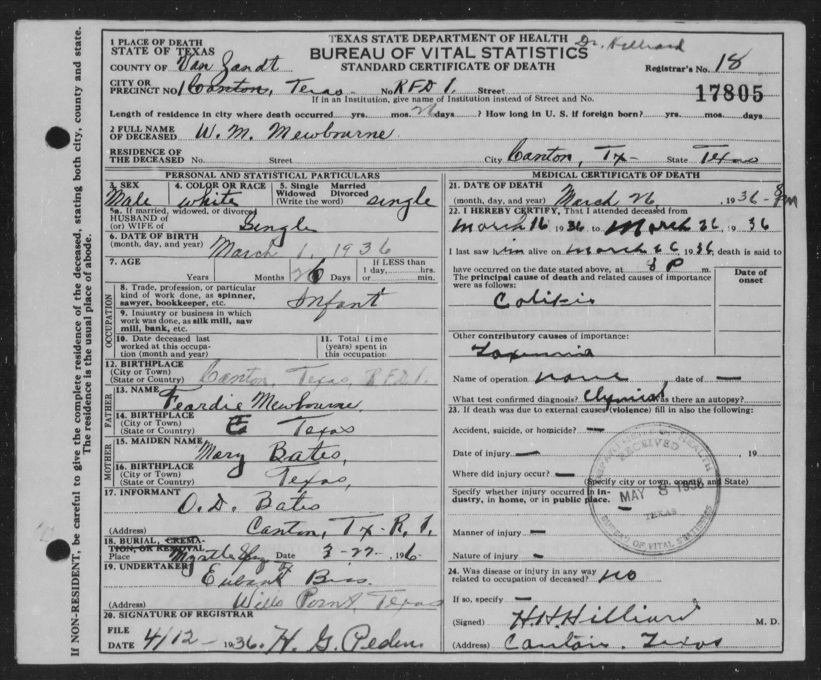 TEXAS STATE DEPARTMENT OF HEALTH
Dr. Hilliard
BUREAU OF VITAL STATISTICS
STANDARD CERTIFICATE OF DEATH
Registrar's No. 18
17805
1 PLACE OF DEATH
STATE OF TEXAS
COUNTY OF Van Zandt
CITY OR
PRECINCT NO. Canton, Texas No. RFD 1. Street
If in an Institution, give name of Institution instead of Street and No.
Length of residence in city where death occurred yrs. mos. 26 days? How long in U. S. If foreign born? yrs. mos. days.
2 FULL NAME
OF DECEASED W. M. Mewbourne
RESIDENCE OF
THE DECEASED No. Street City Canton, Tx- State Texas
PERSONAL AND STATISTICAL PARTICULARS
3. SEX 4. COLOR OR RACE 5. Single Married
Widowed Divorced
Male white (Write the word) single
5a. If married, widowed, or divorced
HUSBAND of
(or) WIFE of Single
6. DATE OF BIRTH
(month, day, and year) March 1, 1936
7. AGE If LESS than
Years Months 26 Days 1 day, hrs.
or min.
OCCUPATION
8. Trade, profession, or particular
kind of work done, as spinner,
sawyer, bookkeeper, etc. Infant
9. Industry or business in which
work was done, as silk mill, saw
mill, bank, etc.
10. Date deceased last
worked at this occupa-
tion (month and year)
11. Total time
(years) spent in
this occupation
12. BIRTHPLACE
(City or Town)
(State or Country) Canton, Texas, RFD 1.
FATHER
13. NAME
Feardie Mewbourne
14. BIRTHPLACE
(City or Town)
(State or Country) Texas
MOTHER
15. MAIDEN NAME
Mary Bates,
16. BIRTHPLACE
(City or Town)
(State or Country) Texas,
17. INFORMANT
O. D. Bates
(Address) Canton, Tx- R. 1.
18. BURIAL, CREMA-
TION, OR REMOVAL
Place Myrtle Date 3-27-, 1936
19. UNDERTAKER
Eubank Bros.
(Address) Wills Point, Texas
20. SIGNATURE OF REGISTRAR
FILE
DATE 4/12 - 1936. H. G. Peden
MEDICAL CERTIFICATE OF DEATH
21. DATE OF DEATH
(month, day, and year) March 26, 1936- 8 pm
22. I HEREBY CERTIFY, That I attended deceased from
March 16 1936, to March 26, 1936
I last saw him alive on March 26 1936, death is said to
have occurred on the date stated above, at 8 P m.
The principal cause of death and related causes of importance
were as follows:
Date of
onset
Colitis
Other contributory causes of importance:
Toxemia
Name of operation none date of —
What test confirmed diagnosis? Clinical Was there an autopsy?
23. If death was due to external causes (violence) fill in also the following:
Accident, suicide, or homicide? —
Date of injury — , 19
Where did injury occur? —
(Specify city or town, county, and State)
Specify whether injury occurred in in-
dustry, in home, or in public place. —
Manner of injury —
Nature of injury —
24. Was disease or injury in any way
related to occupation of deceased? no
If so, specify —
(Signed) H. H. Hilliard M. D.
(Address) Canton, Texas
DEPARTMENT OF HEALTH
RECEIVED
MAY 8 1936
TEXAS
BUREAU OF VITAL STATISTICS
If NON-RESIDENT, be careful to give the complete residence of the deceased, stating both city, county and state.
The residence is the usual place of abode.